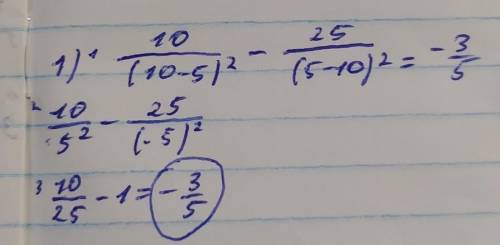 1) ¹ 10/(10-5)² - 25/(5-10)² = -3/5
² 10/5² - 25/(-5)²
³ 10/25 - 1 = -3/5